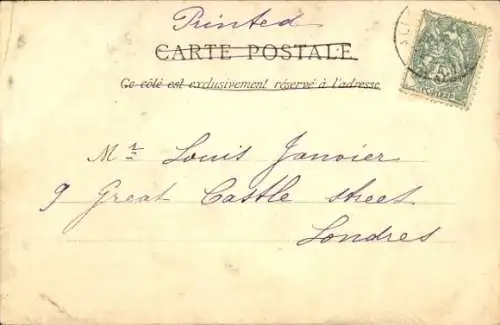 Printed
CARTE POSTALE
Ce côté est exclusivement réservé à l'adresse
Mr Louis Janvier
9 Great Castle street
Londres